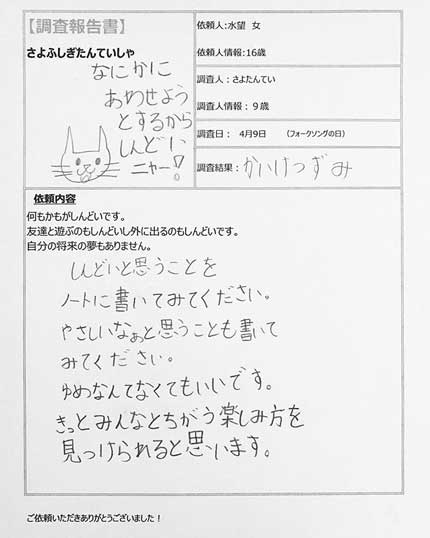 【調査報告書】
さよふしぎたんていしゃ
なにかに
あわせよう
とするから
しんどい
ニャー!
依頼人:水望 女
依頼人情報:16歳
調査人:さよたんてい
調査人情報:9歳
調査日: 4月9日 (フォークソングの日)
調査結果:かいけつずみ
依頼内容
何もかもがしんどいです。
友達と遊ぶのもしんどいし外に出るのもしんどいです。
自分の将来の夢もありません。
しんどいと思うことを
ノートに書いてみてください。
やさしいなぁと思うことも書いて
みてください。
ゆめなんてなくてもいいです。
きっとみんなとちがう楽しみ方を
見つけられると思います。
ご依頼いただきありがとうございました!